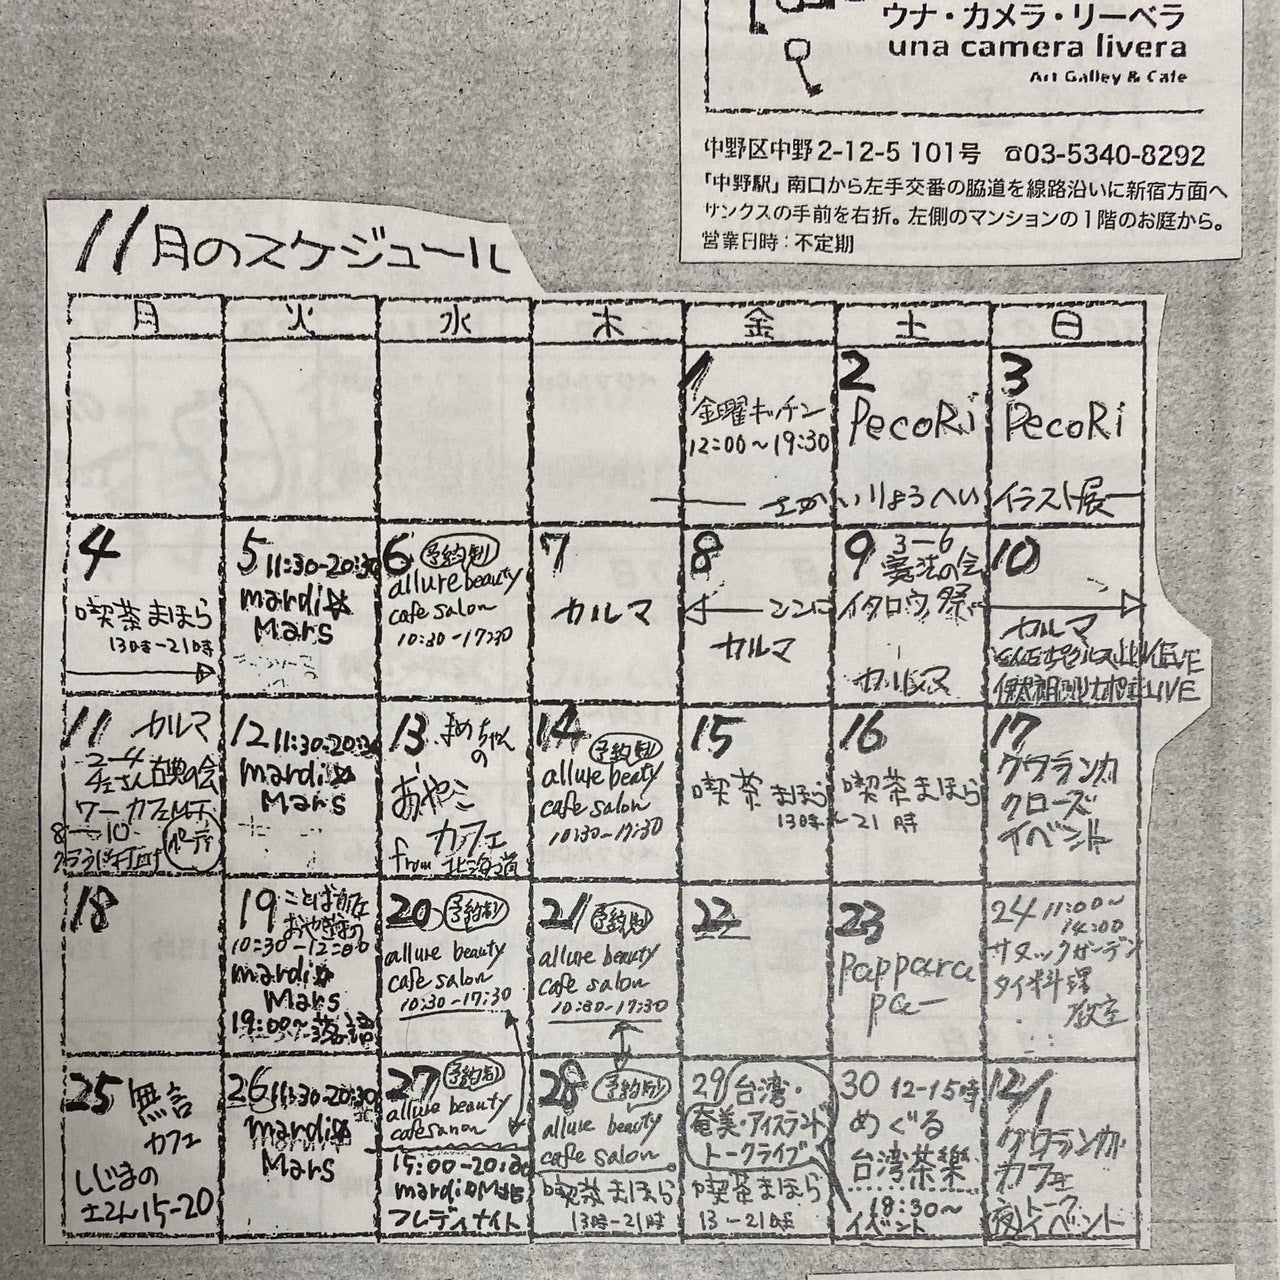 ウナ・カメラ・リーベラ
una camera livera
Art Galley & Cafe
中野区中野2-12-5 101号 ☎03-5340-8292
「中野駅」南口から左手交番の脇道を線路沿いに新宿方面へ
サンクスの手前を右折。左側のマンションの1階のお庭から。
営業日時：不定期
11月のスケジュール
月 火 水 木 金 土 日
1
金曜キッチン
12:00～19:30
2
PecoRi
3
PecoRi
さかいりょうへい イラスト展
4
喫茶まほら
13時-21時
5 11:30-20:30
mardi☆
Mars
6 予約制
allure beauty
cafe salon
10:30-17:30
7
カルマ
8
カルマ
9 3-6
の会
イタロウ祭
カルマ
10
カルマ
LIVE
LIVE
11 カルマ
2-4
古典の会
ワーカフェ
8-10
12 11:30-20:30
mardi☆
Mars
13 まめちゃん
の
あやこ
カフェ
from 北海道
14 予約制
allure beaty
cafe salon
10:30-17:30
15
喫茶まほら
16
喫茶まほら
13時～21時
17
グワランカ
クローズ
イベント
18
19 ことば
10:30-12:00
mardi☆
Mars
19:00～落語
20 予約制
allure beauty
cafe salon
10:30-17:30
21 予約制
allure beauty
cafe salon
10:30-17:30
22
23
Pappara
pa-
24 11:00～
14:00
ガーデン
タイ料理
教室
25 無言
カフェ
しじまの
15-20
26 11:30-20:30
mardi☆
Mars
27 予約制
allure beauty
15:00-20:30
mardi☆Mars
フレディナイト
28 予約制
allure beauty
cafe salon
喫茶まほら
13時-21時
29 台湾・
奄美・アイスランド
トークライブ
喫茶まほら
13-21時
30 12-15時
めぐる
台湾茶樂
18:30～
イベント
12/1
グワランカ
カフェ
夜 トーク
イベント